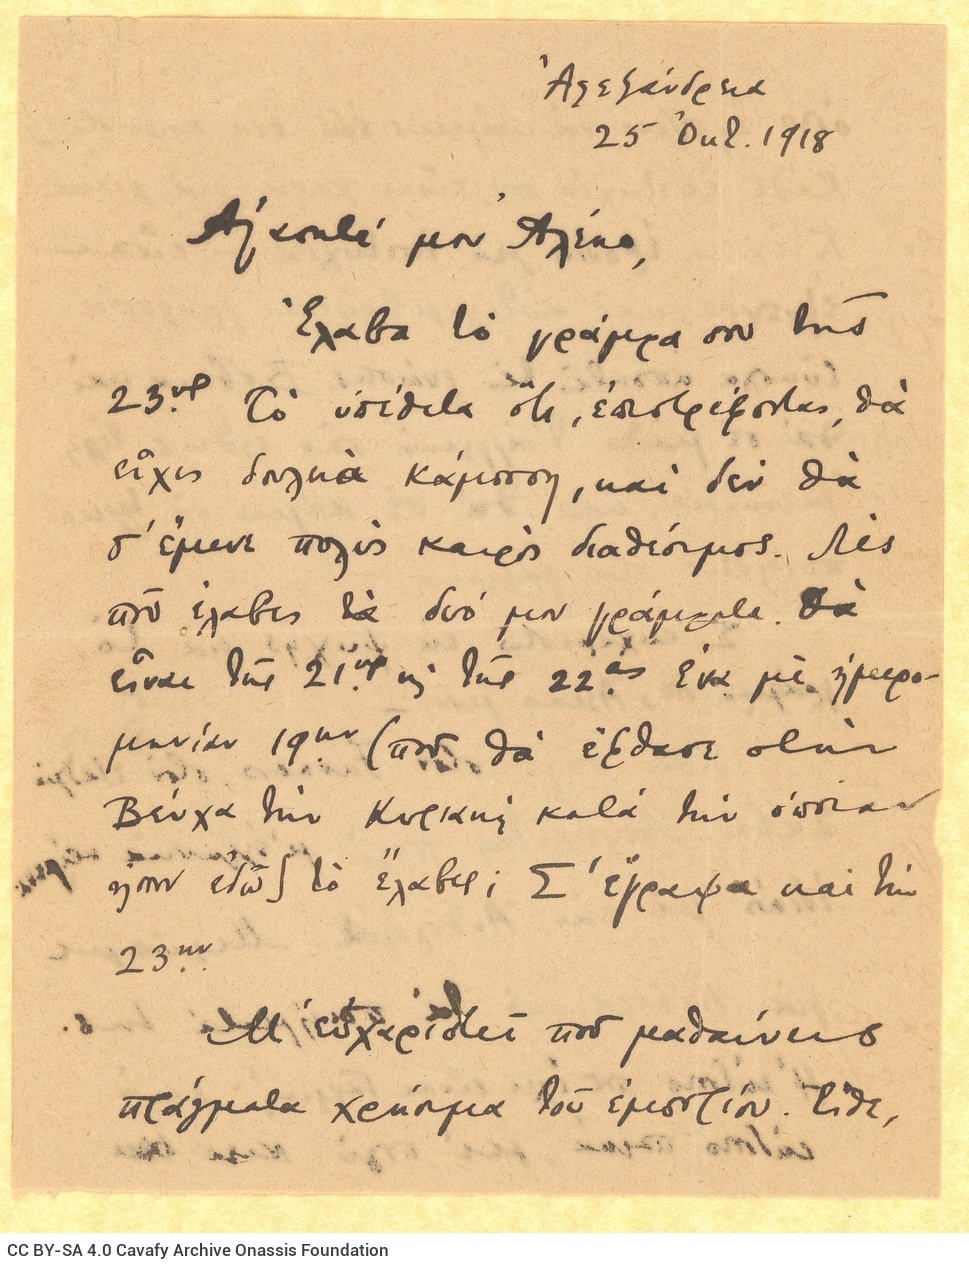 Ἀλεξάνδρεια
25 Ὀκτ. 1918
Ἀγαπητέ μου Ἀλέκο,
Ἔλαβα τὸ γράμμα σου τῆς
23ης. Τὸ ὑπέθετα ὅτι, ἐπιστρέφοντας, θὰ
εἶχες δουλειὰ κάμποση, καὶ δὲν θὰ
σ' ἔμενε πολὺς καιρὸς διαθέσιμος. Λὲς
ποῦ ἔλαβες τὰ δυό μου γράμματα. Θὰ
εἶναι τῆς 21ης κ τῆς 22ας. Ἕνα μὲ ἡμερο-
μηνίαν 19ην (ποῦ θὰ ἔφθασε στὴν
Βέρχα τὴν Κυριακὴ κατὰ τὴν ὁποίαν
ἤσουν ἐδῶ) τὸ ἔλαβες; Σ' ἔγραψα καὶ τὴν
23ην.
Μ' εὐχαριστεῖ ποῦ μαθαίνεις
πράγματα χρήσιμα τοῦ ἐμπορίου. Εἴθε,
CC BY-SA 4.0 Cavafy Archive Onassis Foundation